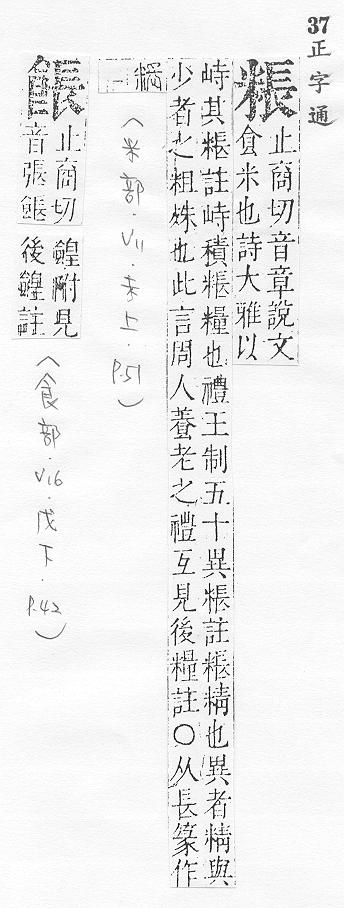 37正字通
粻
止商切音章說文
食米也詩大雅以
峙其粻註峙積粻糧也禮王制五十異粻註粻精也異者精與
少者之粗殊也此言問人養老之禮互見後糧註○从長篆作
(米部.V11.未上.P.51)
餦
止商切
音張餦
餭附見
後餭註
(食部.V16.戌下.P.42)